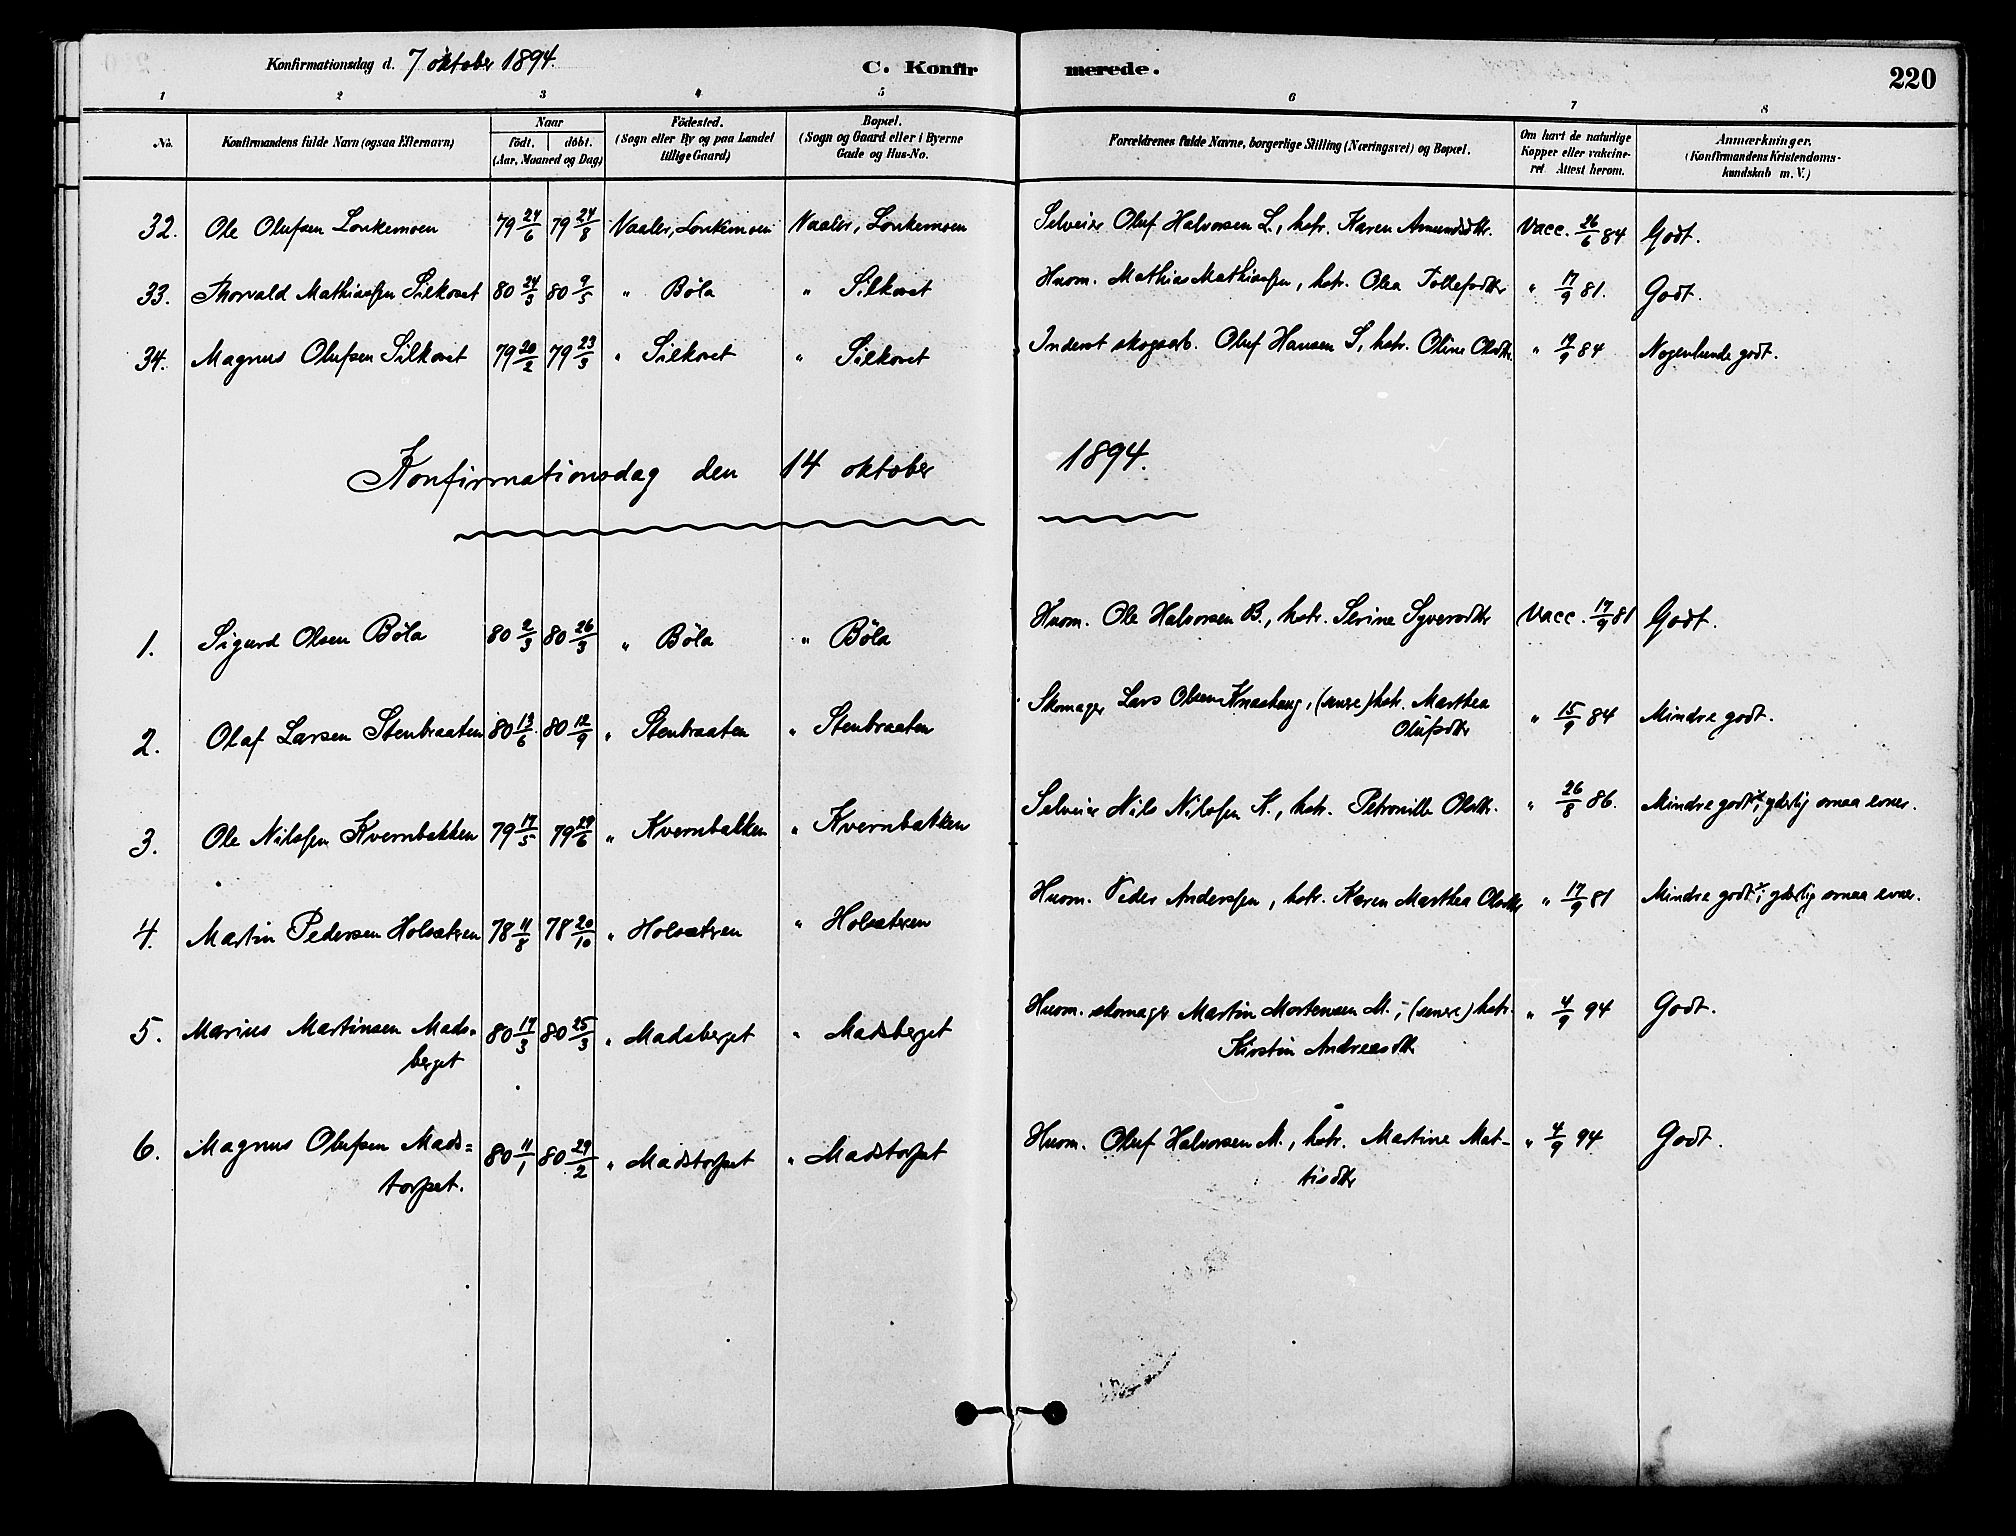 Konfirmationsdag d. 7 oktober 1894. C. Konfir merede. 220
1 2 3 4 5 6 7 8
No. Konfirmandens fulde Navn (ogsaa Efternavn) Naar født. døbt. (Aar, Maaned og Dag) Födested. (Sogn eller By og paa Landet tillige Gaard) Bopæl. (Sogn og Gaard eller i Byerne Gade og Hus-No. Forældrenes fulde Navne, borgerlige Stilling (Næringsvei) og Bopæl. Om havt de naturlige Kopper eller vakcineret Attest herom. Anmærkninger. (Konfirmandens Kristendomskundskab m. V.)
32. Ole Olufsen Lonkemoen 79 24/6 79 24/8 Vaaler, Lonkemoen Vaaler, Lonkemoen Selveier Oluf Halvorsen L., hstr. Karen Amundsdtr. Vacc. 26/6 84 Godt.
33. Thorvald Mathiassen Silkoset 80 24/3 80 9/5 " Bøla " Silkoset Husm. Mathias Mathiassen, hstr. Olea Tollefsdtr " 17/9 81. Godt.
34. Magnus Olufsen Silkoset 79 20/2 79 23/3 " Silkoset " Silkoset Inderst skogsarb. Oluf Hansen S, hstr. Oline Olsdtr. " 17/9 84 Nogenlunde godt.
Konfirmationsdag den 14 oktober 1894.
1. Sigurd Olsen Bøla 80 2/3 80 26/3 " Bøla " Bøla Husm. Ole Halvorsen B., hstr. Serine Syversdtr Vacc. 17/9 81 Godt.
2. Olaf Larsen Stenbraaten 80 13/6 80 12/9 " Stenbraaten " Stenbraaten Skomager Lars Olsen Knashaug, (senere) hstr. Marthea Olufsdtr " 15/9 84 Mindre godt.
3. Ole Nilssen Kvernbakken 79 17/5 79 29/6 " Kvernbakken " Kvernbakken Selveier Nils Nilssen K., hstr. Petronille Olsdtr. " 26/8 86. Mindre godt; gdslig smaa evner.
4. Martin Pedersen Holsætren 78 11/8 78 20/10 " Holsætren " Holsætren Husm. Peder Anderssen, hstr. Karen Marthea Olsdtr " 17/9 81 Mindre godt; gdslig smaa evner.
5. Marius Martinsen Mads= 80 17/3 80 25/3 " Madsberget " Madsberget Husm. skomager Martin Mortensen M.; (senere) hstr. " 4/9 94 Godt.
berget Kirstin Andreasdtr
6. Magnus Olufsen Mads= 80 11/1 80 29/2 " Madstorpet " Madstorpet Husm. Oluf Halvorsen M., hstr. Martine Mat- " 4/9 94 Godt.
torpet. tisdtr